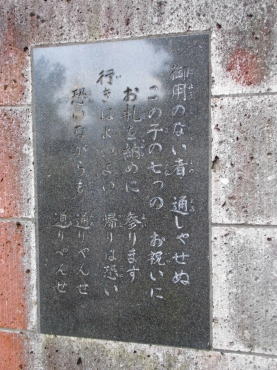 御用のない者 通しゃせぬ
この子の七つの お祝いに
お札を納めに 参ります
行きはよいよい 帰りは恐い
恐いながらも 通りゃんせ
通りゃんせ